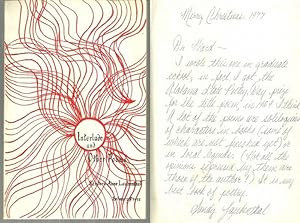 Interlude
and
Other Poems
Merry Christmas 1977
Dr. Ward –
I wrote this one in graduate
school; in fact I got the
Alabama State Poetry Day prize
for the title poem, in
of the poems are soliloquies
of characters in books (some of
which are not finished yet) or
in local legends. (Not all the
opinions expressed by them are
those of the author.) It is my
best book of poetry.
Sandy